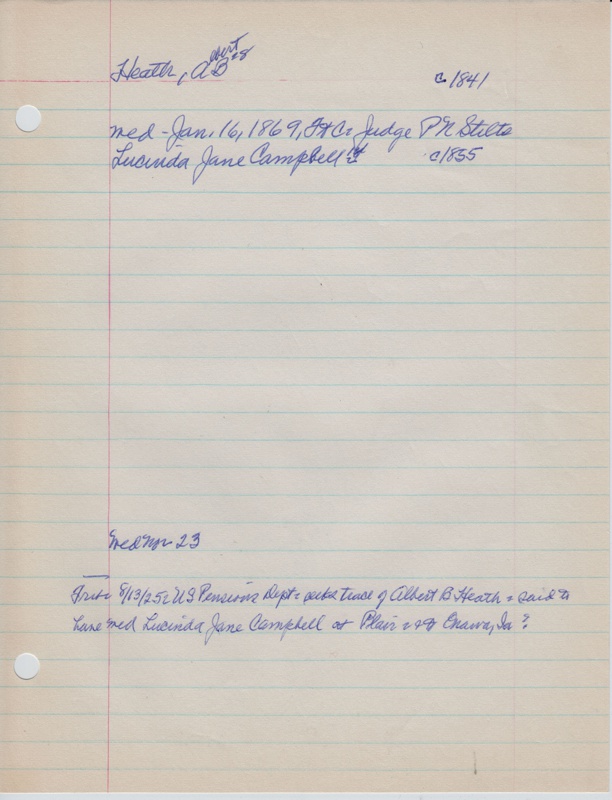 Heath, Albert B 28 c 1841
med - Jan. 16, 1869, Ft C: Judge P N Stilts
Lucinda Jane Campbell 14 c1855
med no 23
Trib: 8/13/25: US Pensions Dept: seeks trace of Albert B Heath = said to
have med Lucinda Jane Campbell at Blair Onawa, Ia ?